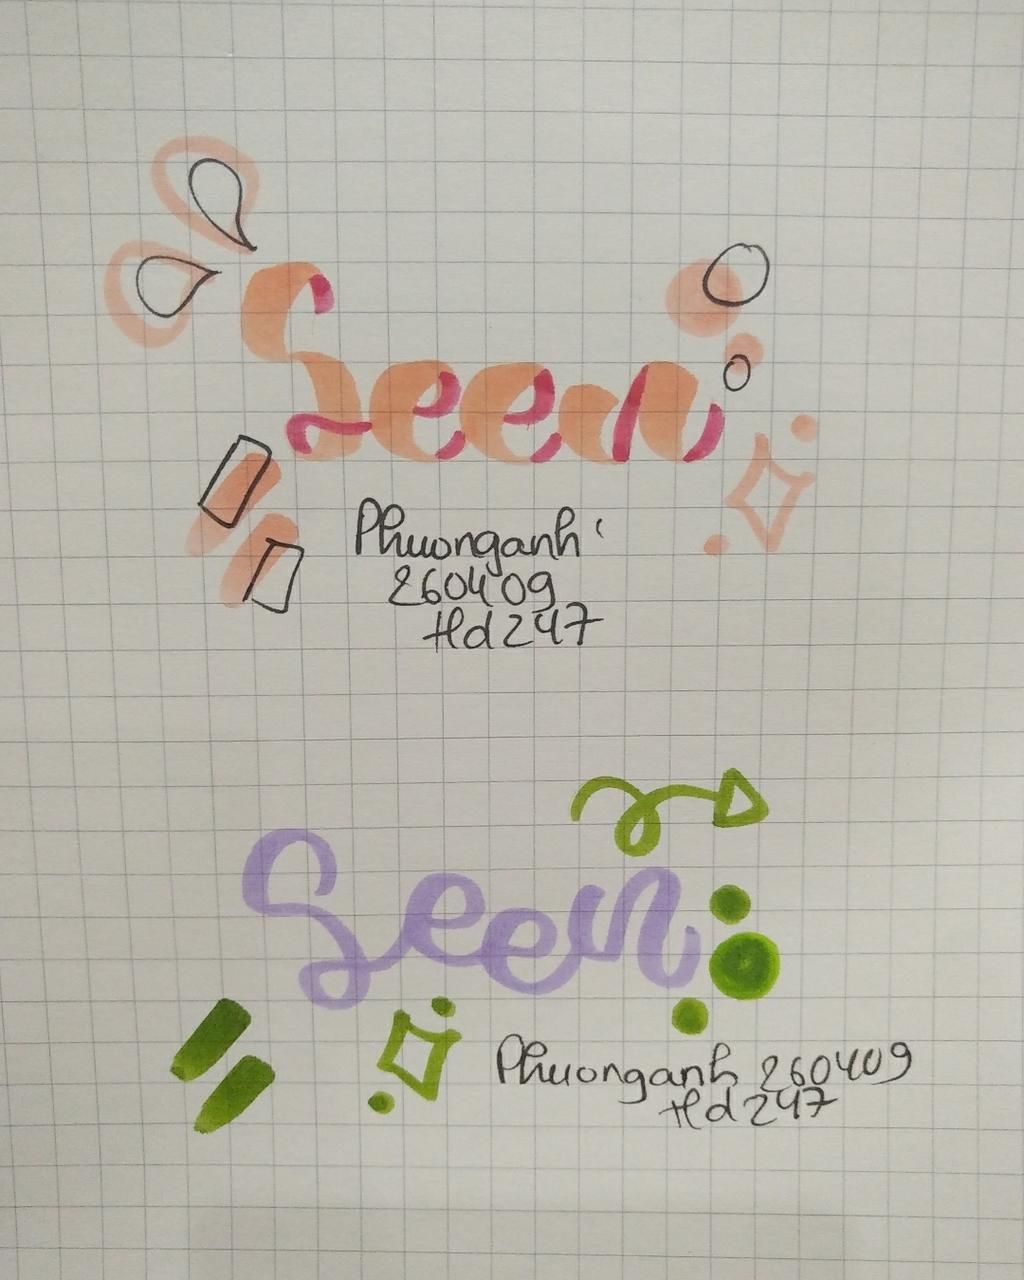 Seen
Phuonganh
260409
Hd247
Seen
Phuonganh 260409
Hd247